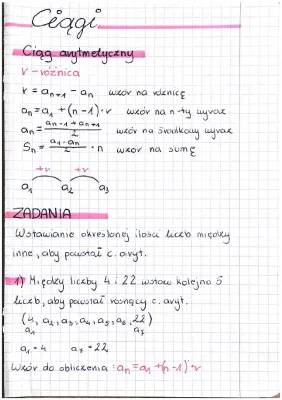 Ciągi
Ciąg arytmetyczny
r - różnica
r = aₙ₊₁ - aₙ wzór na różnicę
aₙ = a₁ + (n - 1) · r wzór na n-ty wyraz
aₙ = (aₙ₋₁ + aₙ₊₁)/2 wzór na środkowy wyraz
Sₙ = (a₁ - aₙ)/2 · n wzór na sumę
+r +r
a₁ a₂ a₃
ZADANIA
Wstawianie określonej ilości liczb między
inne, aby powstał c. aryt.
1) Między liczby 4 i 22 wstaw kolejno 5
liczb, aby powstał rosnący c. aryt.
(4, a₂, a₃, a₄, a₅, a₆, 22)
a₁ a₇
a₁ = 4 a₇ = 22
Wzór do obliczenia : aₙ = a₁ + (n - 1) · r